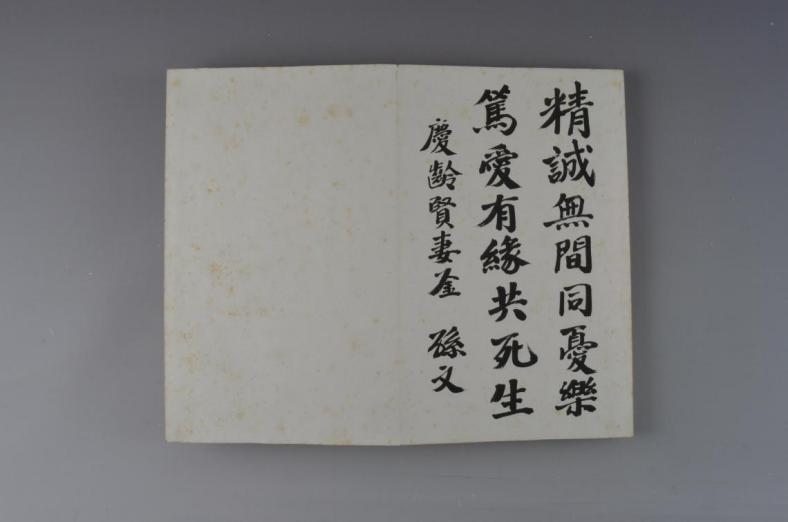 精誠無間同憂樂
篤愛有緣共死生
慶齡賢妻鉴 孫文